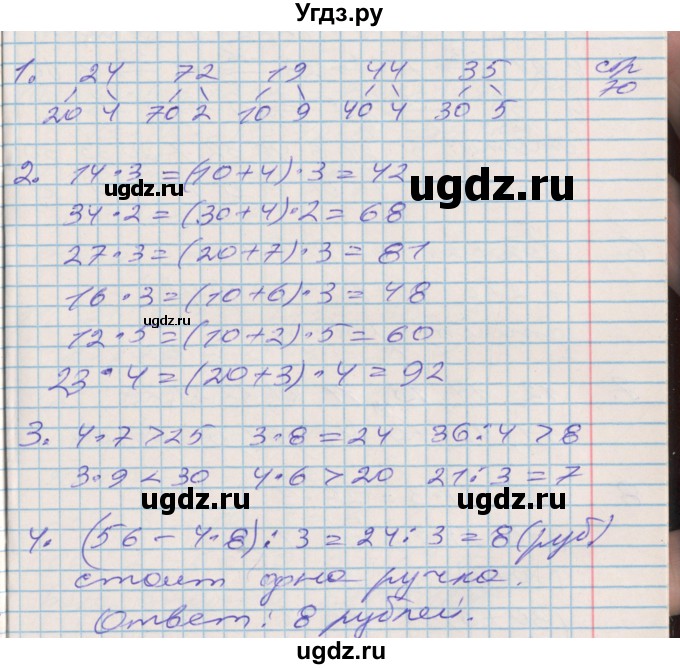 Угдз.ру
1. 24 72 19 44 35 стр
20 4 70 2 10 9 40 4 30 5 70
2. 14 · 3 = (10 + 4) · 3 = 42
ugdz.ru
ugdz.ru
34 · 2 = (30 + 4) · 2 = 68
27 · 3 = (20 + 7) · 3 = 81
16 · 3 = (10 + 6) · 3 = 48
ugdz.ru
12 · 5 = (10 + 2) · 5 = 60
23 · 4 = (20 + 3) · 4 = 92
3. 4 · 7 > 25 3 · 8 = 24 36 : 4 > 8
3 · 9 < 30 4 · 6 > 20 21 : 3 = 7
ugdz.ru ugdz.ru
4. (56 - 4 · 8) : 3 = 24 : 3 = 8 (руб)
стоит одна ручка.
Ответ: 8 рублей.
ugdz.ru